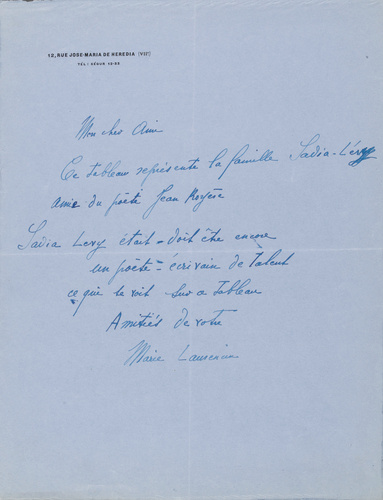 12, RUE JOSÉ-MARIA DE HEREDIA (VIIe)
TÉL: SÉGUR
Mon cher Ami
Ce tableau représente la famille Sadia-Lévy
amie du poète Jean Royère
Sadia Levy était - doit être encore
un poète - écrivain de talent
ce que se voit sur ce tableau
Amitiés de votre
Marie Laurencin